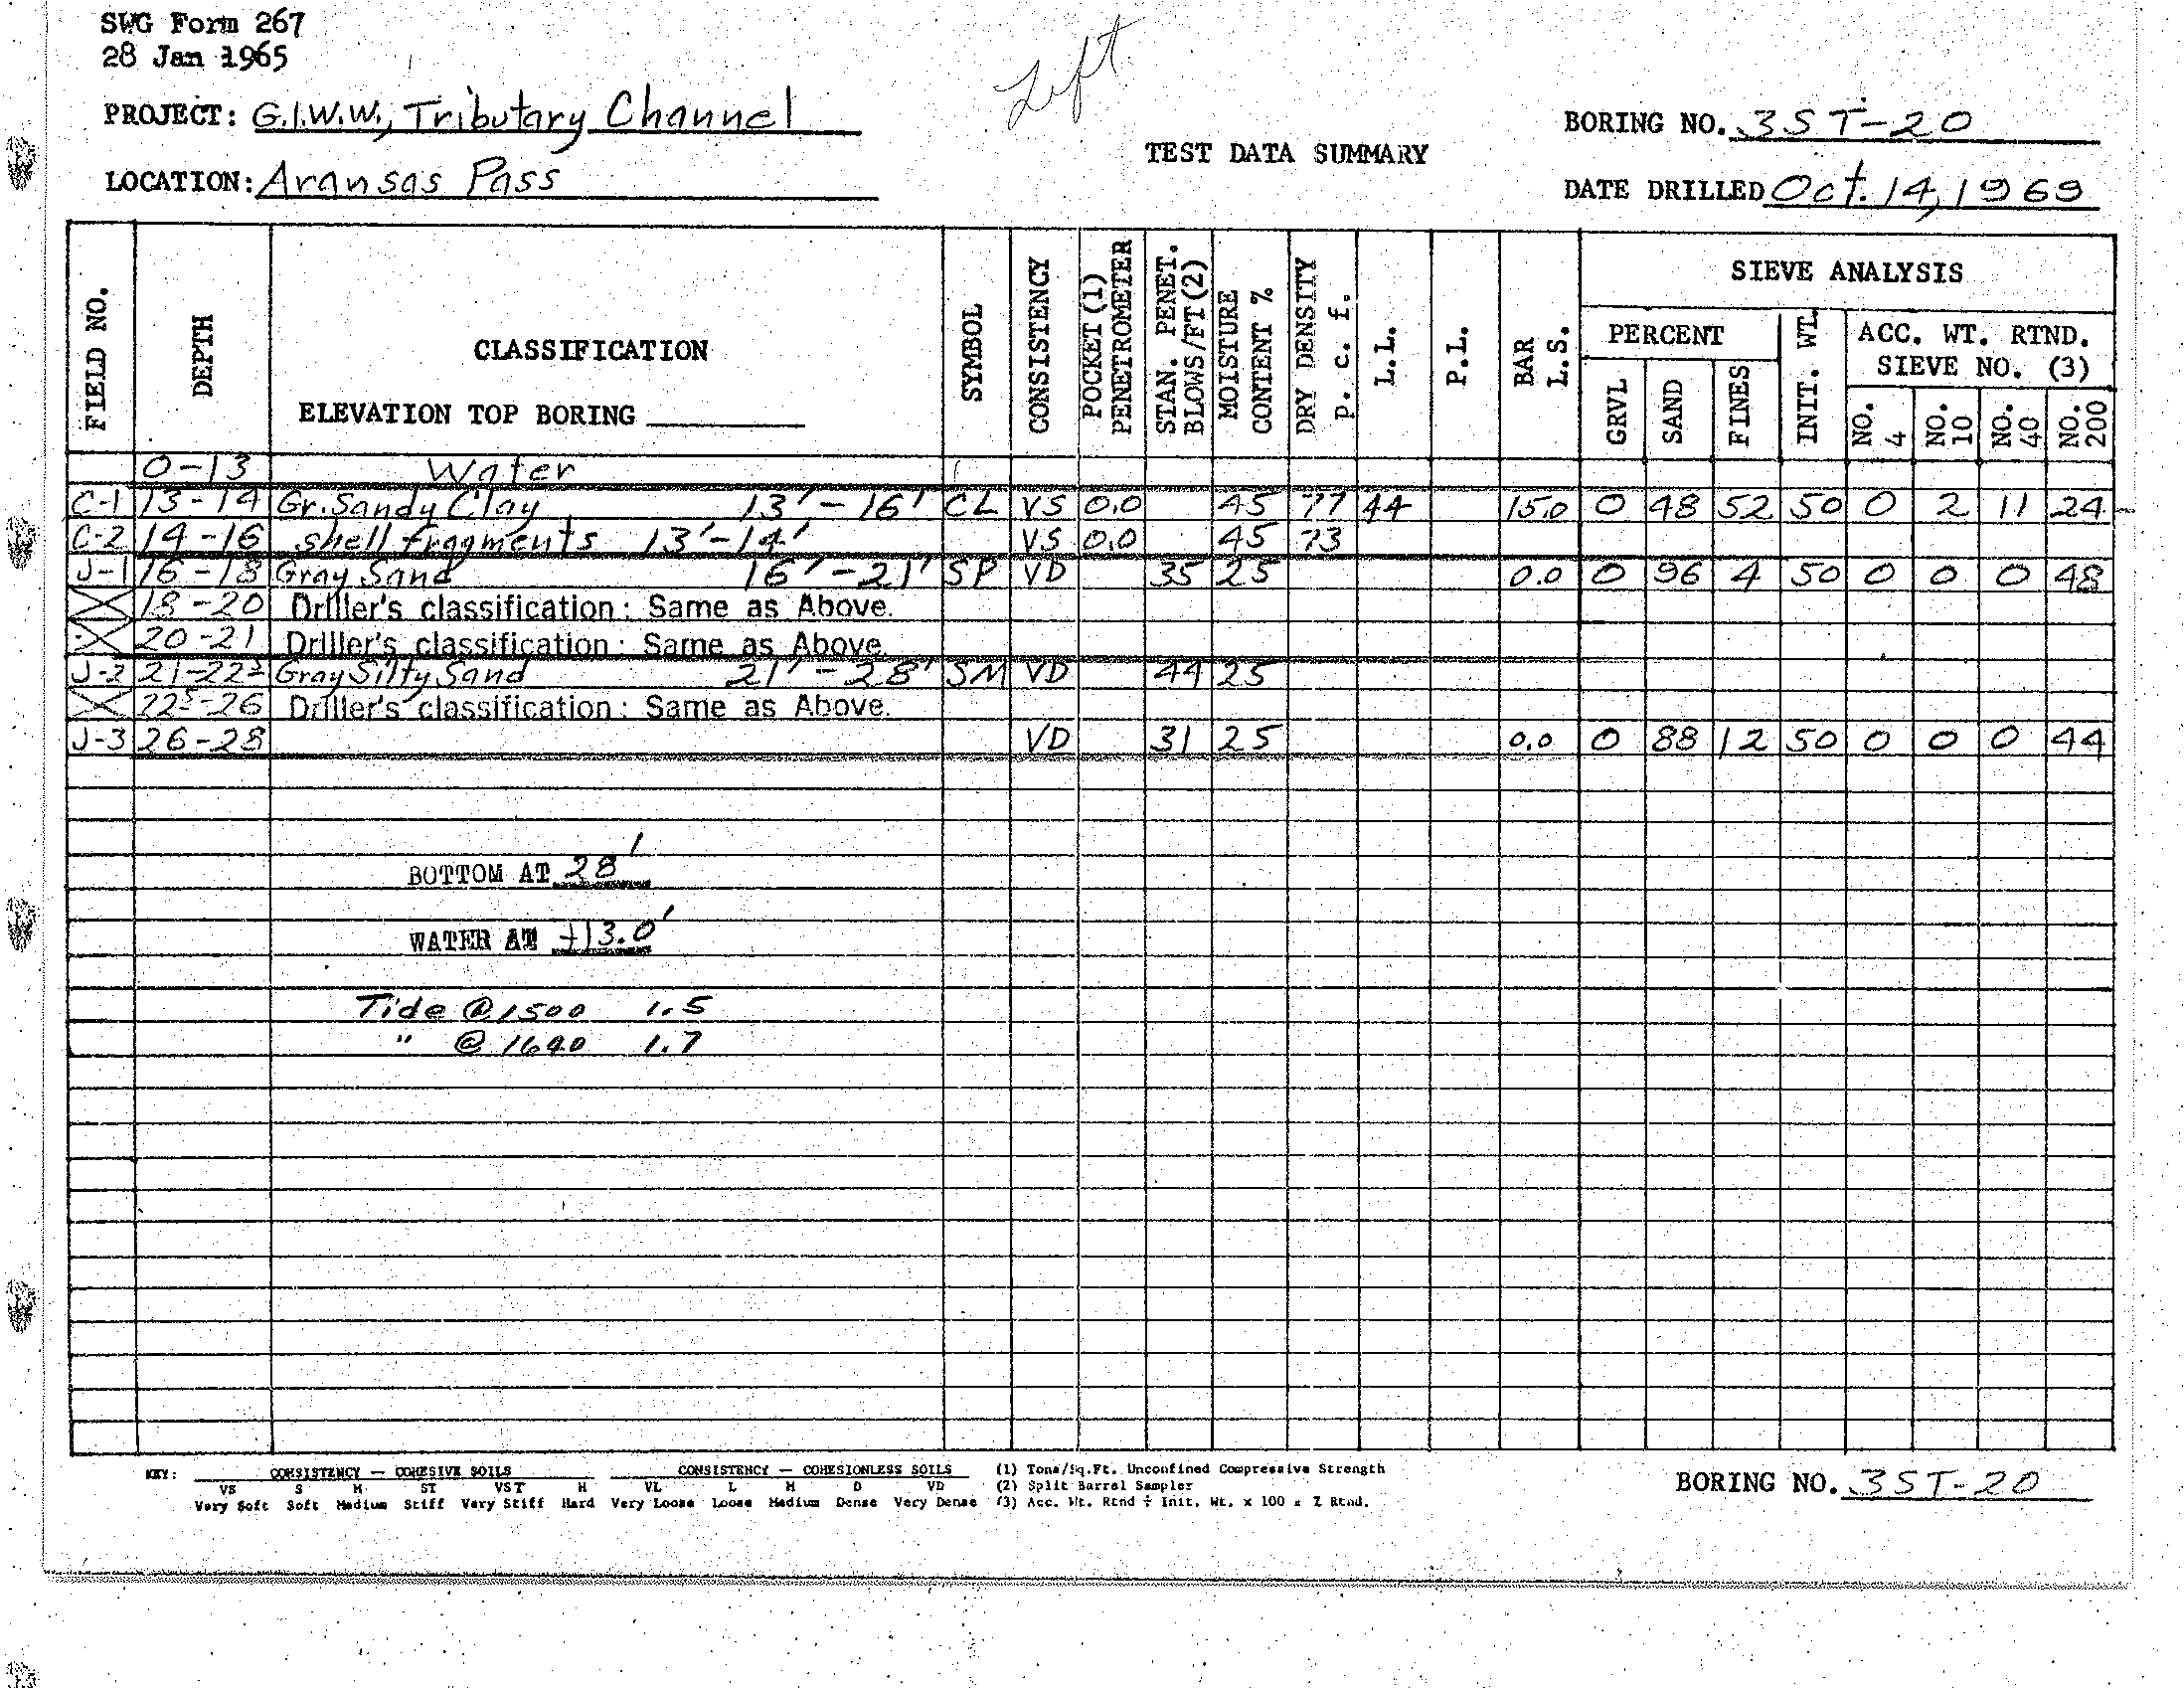 SWG Form 267
28 Jan 1965
Left
PROJECT: G.I.W.W., Tributary Channel
BORING NO. 3ST-20
TEST DATA SUMMARY
LOCATION: Aransas Pass
DATE DRILLED Oct. 14, 1969
FIELD NO.
DEPTH
CLASSIFICATION
ELEVATION TOP BORING
SYMBOL
CONSISTENCY
POCKET (1) PENETROMETER
STAN. PENET. BLOWS/FT (2)
MOISTURE CONTENT %
DRY DENSITY p. c. f.
L.L.
P.L.
BAR L.S.
SIEVE ANALYSIS
PERCENT
GRVL
SAND
FINES
INIT. WT.
ACC. WT. RTND.
SIEVE NO. (3)
NO. 4
NO. 10
NO. 40
NO. 200
0-13 Water
C-1 13-14 Gr. Sandy Clay 13'-16' CL VS 0.0 45 77 44 15.0 0 48 52 50 0 2 11 24
C-2 14-16 shell fragments 13'-14' VS 0.0 45 73
J-1 16-18 Gray Sand 16'-21' SP VD 35 25 0.0 0 96 4 50 0 0 0 48
18-20 Driller's classification: Same as Above.
20-21 Driller's classification: Same as Above.
J-2 21-22⁵ Gray Silty Sand 21'-28' SM VD 44 25
22⁵-26 Driller's classification: Same as Above.
J-3 26-28 VD 31 25 0.0 0 88 12 50 0 0 0 44
BOTTOM AT 28'
WATER AT +13.0'
Tide @ 1500 1.5
" @ 1640 1.7
KEY: CONSISTENCY — COHESIVE SOILS CONSISTENCY — COHESIONLESS SOILS (1) Tons/Sq.Ft. Unconfined Compressive Strength
VS S M ST VST H VL L M D VD (2) Split Barrel Sampler
Very Soft Soft Medium Stiff Very Stiff Hard Very Loose Loose Medium Dense Very Dense (3) Acc. Wt. Rtnd ÷ Init. Wt. x 100 = % Rtnd.
BORING NO. 3ST-20